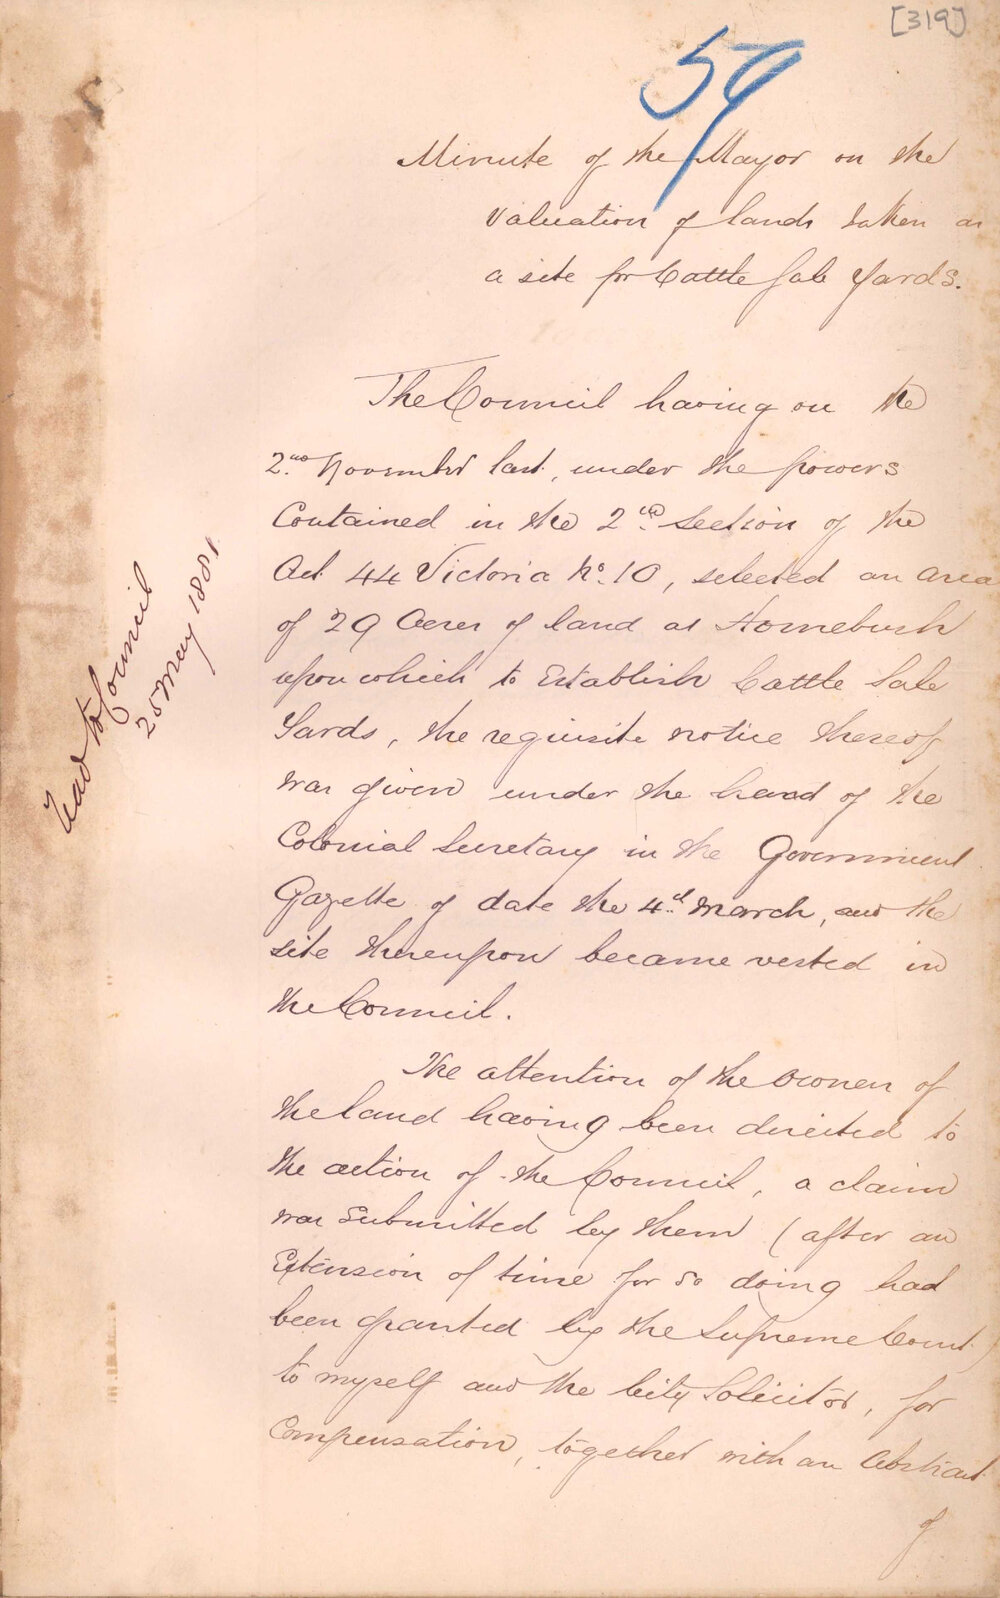 [319]
59
Minute of the Mayor on the
valuation of lands taken as
a site for Cattle Sale Yards.
The Council having on the
2nd November last, under the powers
Contained in the 2nd Section of the
Act 44 Victoria No. 10, selected an area
of 29 Acres of land at Homebush
upon which to Establish Cattle Sale
Yards, the requisite notice thereof
was given under the hand of the
Colonial Secretary in the Government
Gazette of date the 4th March, and the
site thereupon became vested in
the Council.
The attention of the owners of
the land having been directed to
the action of the Council, a claim
was submitted by them (after an
Extension of time for so doing had
been granted by the Supreme Court)
to myself and the City Solicitor, for
Compensation, together with an Abstract
of
Read to Council
25 May 1881